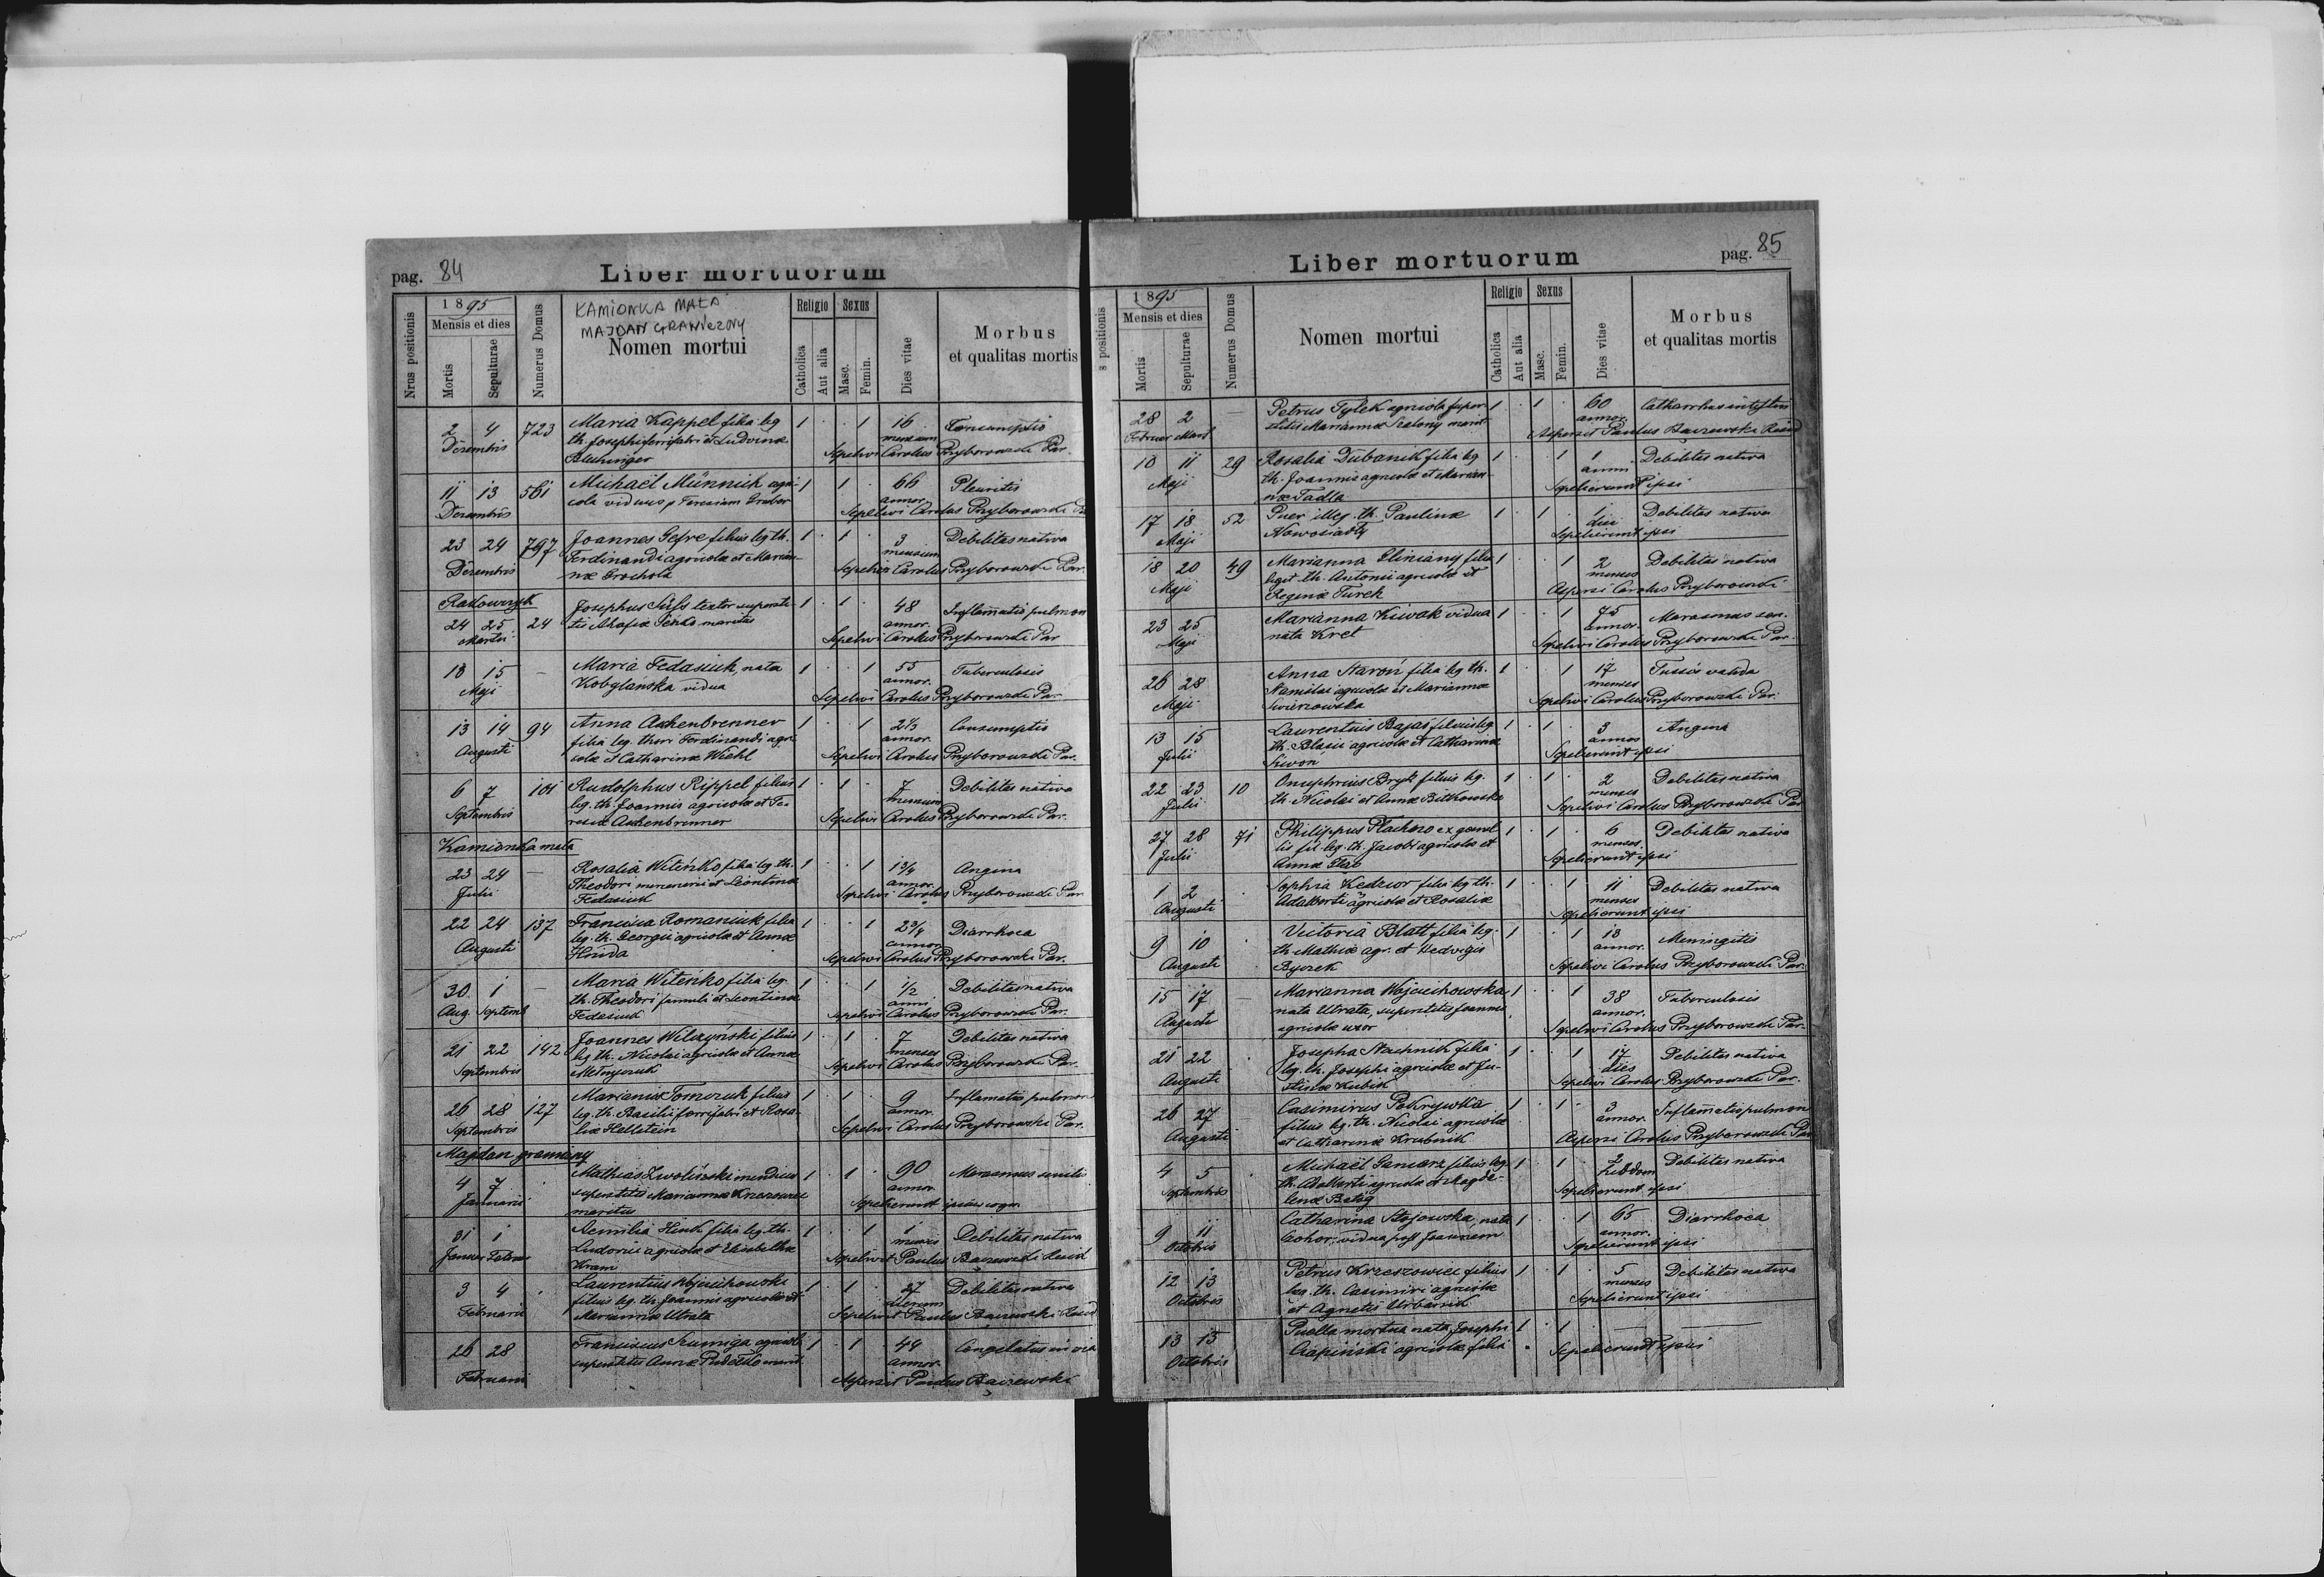 pag. 84
Liber mortuorum
Nrus positionis
1895
Mensis et dies
Mortis
Sepulturae
Numerus Domus
KAMIONKA MAŁA
MAJDAN GRANICZNY
Nomen mortui
Religio
Catholica
Aut alia
Sexus
Masc.
Femin.
Dies vitae
Morbus
et qualitas mortis
2 4 723 Maria Kappel filia leg 1 . . 1 16 Consumptio
Decembris th. Josephi ferrifabri et Ludvinæ mensium
Bluhinger Sepelivi Carolus Przyborowski Par.
11 13 561 Michaël Münnich agri- 1 . 1 . 66 Pleuritis
Decembris cola viduus p Teresiam Gruber annor.
Sepelivi Carolus Przyborowski
23 24 797 Joannes Gefre filius leg th. 1 . 1 . 3 Debilitas nativa
Decembris Ferdinandi agricolæ et Marian- mensium
næ Grochola Sepelivi Carolus Przyborowski Par.
Rakowczyk
24 25 24 Josephus Süss textor supersti- 1 . 1 . 48 Inflamatio pulmon
Martii tis maritus annor.
Sepelivi Carolus Przyborowski Par
13 15 — Maria Fedasiuk, nata 1 . . 1 55 Tuberculosis
Maji Kobylańska vidua annor.
Sepelivi Carolus Przyborowski Par.
13 14 94 Anna Aschenbrenner 1 . . 1 2⅓ Consumptio
Augusti filia leg. thori Ferdinandi agri- annor.
colæ et Catharinæ Wiehl Sepelivi Carolus Przyborowski Par.
6 7 101 Rudolphus Rippel filius 1 . 1 . 7 Debilitas nativa
Septembris leg. th. Joannis agricolæ et Te- mensium
resiæ Aschenbrenner Sepelivi Carolus Przyborowski Par.
Kamionka mała
23 24 — Rosalia Witeńko filia leg. th. 1 . . 1 1¾ Angina
Julii Theodori et Leontinæ annor.
Fedasiuk Sepelivi Carolus Przyborowski Par
22 24 137 Francisca Romaniuk filia 1 . . 1 2¾ Diarrhoea
Augusti leg. th. Georgii agricolæ et Annæ annor.
Hnida Sepelivi Carolus Przyborowski Par.
30 1 — Maria Witeńko filia leg. 1 . . 1 ½ Debilitas nativa
Aug. Septemb th. Theodori famuli et Leontinæ anni
Fedasiuk Sepelivi Carolus Przyborowski Par.
21 22 142 Joannes Wilczyński filius 1 . 1 . 7 Debilitas nativa
Septembris leg th. Nicolai agricolæ et Annæ menses
Melnyczuk Sepelivi Carolus Przyborowski Par.
26 28 127 Marianus Tomczuk filius 1 . 1 . 9 Inflamatio pulmon
Septembris leg. th. Basilii ferrifabri et Rosa- annor.
liæ Hellstein Sepelivi Carolus Przyborowski Par.
Majdan graniczny
4 7 . Mathias Zwoliński mendicus 1 . 1 . 90 Marasmus senilis
Januarii superstitis Mariannæ annor.
maritus Sepelierunt ipsius cogn.
31 1 Aemilia Henk filia leg. th. 1 . . 1 1 Debilitas nativa
Januar Februar Ludovici agricolæ et Elisabethæ mensis
Kram Sepelivit Paulus Baczewski
3 4 . Laurentius Wojciechowski 1 . 1 . 27 Debilitas nativa
Februarii filius leg. th. Joannis agricolæ et dierum
Mariannæ Utrata Sepelivit Paulus Baczewski
26 28 Franciscus Szumiga agricola 1 . 1 44 Congelatus in via
Februarii superstitis Annæ marit. annor.
Aspersit Paulus Baczewski
Liber mortuorum
pag. 85
s positionis
1895
Mensis et dies
Mortis
Sepulturae
Numerus Domus
Nomen mortui
Religio
Catholica
Aut alia
Sexus
Masc.
Femin.
Dies vitae
Morbus
et qualitas mortis
28 2 — Petrus Tylek agricola super- 1 . 1 . 60 Catharrhus intestin
Februar Mart stitis Mariannæ Szelong marit annor.
Aspersit Paulus Baczewski
10 11 29 Rosalia Dubanik filia leg 1 . . 1 1 Debilitas nativa
Maji th. Joannis agricolæ et Marian- anni
næ Tadla Sepelierunt ipsi
17 18 52 Puer illeg. th. Paulinæ 1 . 1 . 1 Debilitas nativa
Maji Nowosiadły diei
Sepelierunt ipsi
18 20 49 Marianna Gliniany filia 1 . . 1 2 Debilitas nativa
Maji legit. th. Antonii agricolæ et menses
Reginæ Turek Aspersi Carolus Przyborowski
23 25 Marianna Kiwak vidua 1 . . 1 75 Marasmus sen.
Maji nata Kret annor.
Sepelivi Carolus Przyborowski Par.
26 28 Anna Staroń filia leg th. 1 . . 1 17 Tussis valida
Maji Stanislai agricolæ et Mariannæ menses
Swierzowska Sepelivi Carolus Przyborowski Par.
13 15 Laurentius Bajas filius leg 1 . 1 . 3 Angina
Julii th. Blasii agricolæ et Catharinæ annos
Siwon Sepelierunt ipsi
22 23 10 Onuphrius Bryk filius leg. 1 . 1 . 2 Debilitas nativa
Julii th. Nicolai et Annæ Bitkowska menses
Sepelivi Carolus Przyborowski Par
27 28 71 Philippus Płachno ex gemel 1 . 1 . 6 Debilitas nativa
Julii lis fil. leg. th. Jacobi agricolæ et menses.
Annæ Sepelierunt ipsi
1 2 . Sophia Kędzior filia leg th. 1 . . 1 11 Debilitas nativa
Augusti Adalberti agricolæ et Rosaliæ menses
Sepelierunt ipsi
9 10 . Victoria Blatt filia leg. 1 . . 1 18 Meningitis
Augusti th Mathiæ agr. et Hedvigis annor.
Byczek Sepelivi Carolus Przyborowski Par.
15 17 — Marianna Wojciechowska 1 . . 1 38 Tuberculosis
Augusti nata Utrata, superstitis Joannis annor.
agricolæ uxor Sepelivi Carolus Przyborowski Par.
21 22 . Josepha Stachnik filia 1 . . 1 17 Debilitas nativa
Augusti leg. th. Josephi agricolæ et Ju- dies
stinæ Kubik Sepelivi Carolus Przyborowski Par.
26 27 . Casimirus Pokrywka 1 . 1 . 3 Inflamatio pulmon
Augusti filius leg. th. Nicolai agricolæ annor.
et Catharinæ Aspersi Carolus Przyborowski Par
4 5 Michaël Gancarz filius leg. 1 . 1 . 2 Debilitas nativa
Septembris th. Adalberti agricolæ et Magda- hebdom
lenæ Batóg Sepelierunt ipsi
9 11 . Catharina Stojowska, nata 1 . . 1 65 Diarrhoea
Octobris vidua post Joannem annor.
Sepelierunt ipsi
12 13 Petrus Krzeszowiec filius 1 . 1 . 5 Debilitas nativa
Octobris leg. th. Casimiri agricolæ menses
et Agnetis Urbanik Sepelierunt ipsi
13 15 Puella mortua nata Josephi 1 . 1
Octobris Czapiński agricolæ filia Sepelierunt ipsi